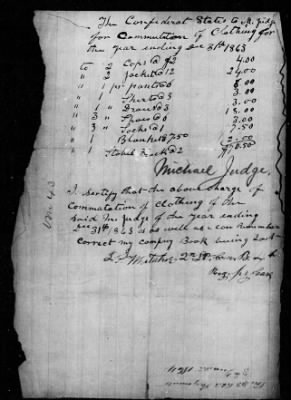 The Confederat States to M. Judge
for Commutation of Clothing for
the year ending Dec 31st 1863
to 2 Caps @ $2 4.00
" 2 Jackets @ 12 24.00
" 1 pr pants @ 6 6.00
" 1 Shirts @ 3 3.00
" 1 Draws @ 3 3.00
" 3 Shoes @ 6 18.00
" 3 Socks @ 1 3.00
" 1 Blanket @ 7.50 7.50
Stock @ 2 2.00
$70.50
Michael Judge,
I certify that the above charge of
Commutation of Clothing of the
said M. Judge of the year ending
Dec 31st 1863 is as well as I can Remember
correct my company Book being Lost